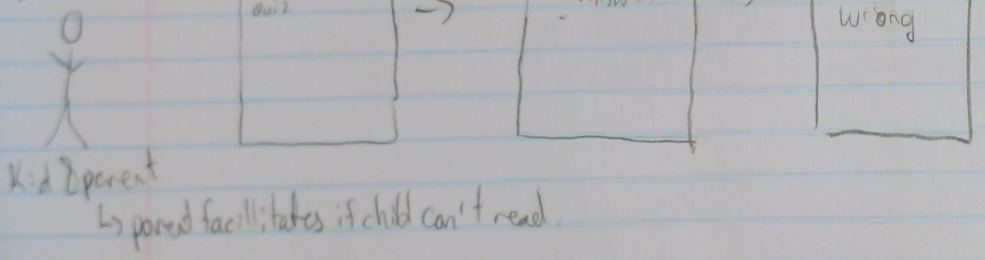 quiz
wrong
Kid & parent
↳ parent facillitates if child can't read.